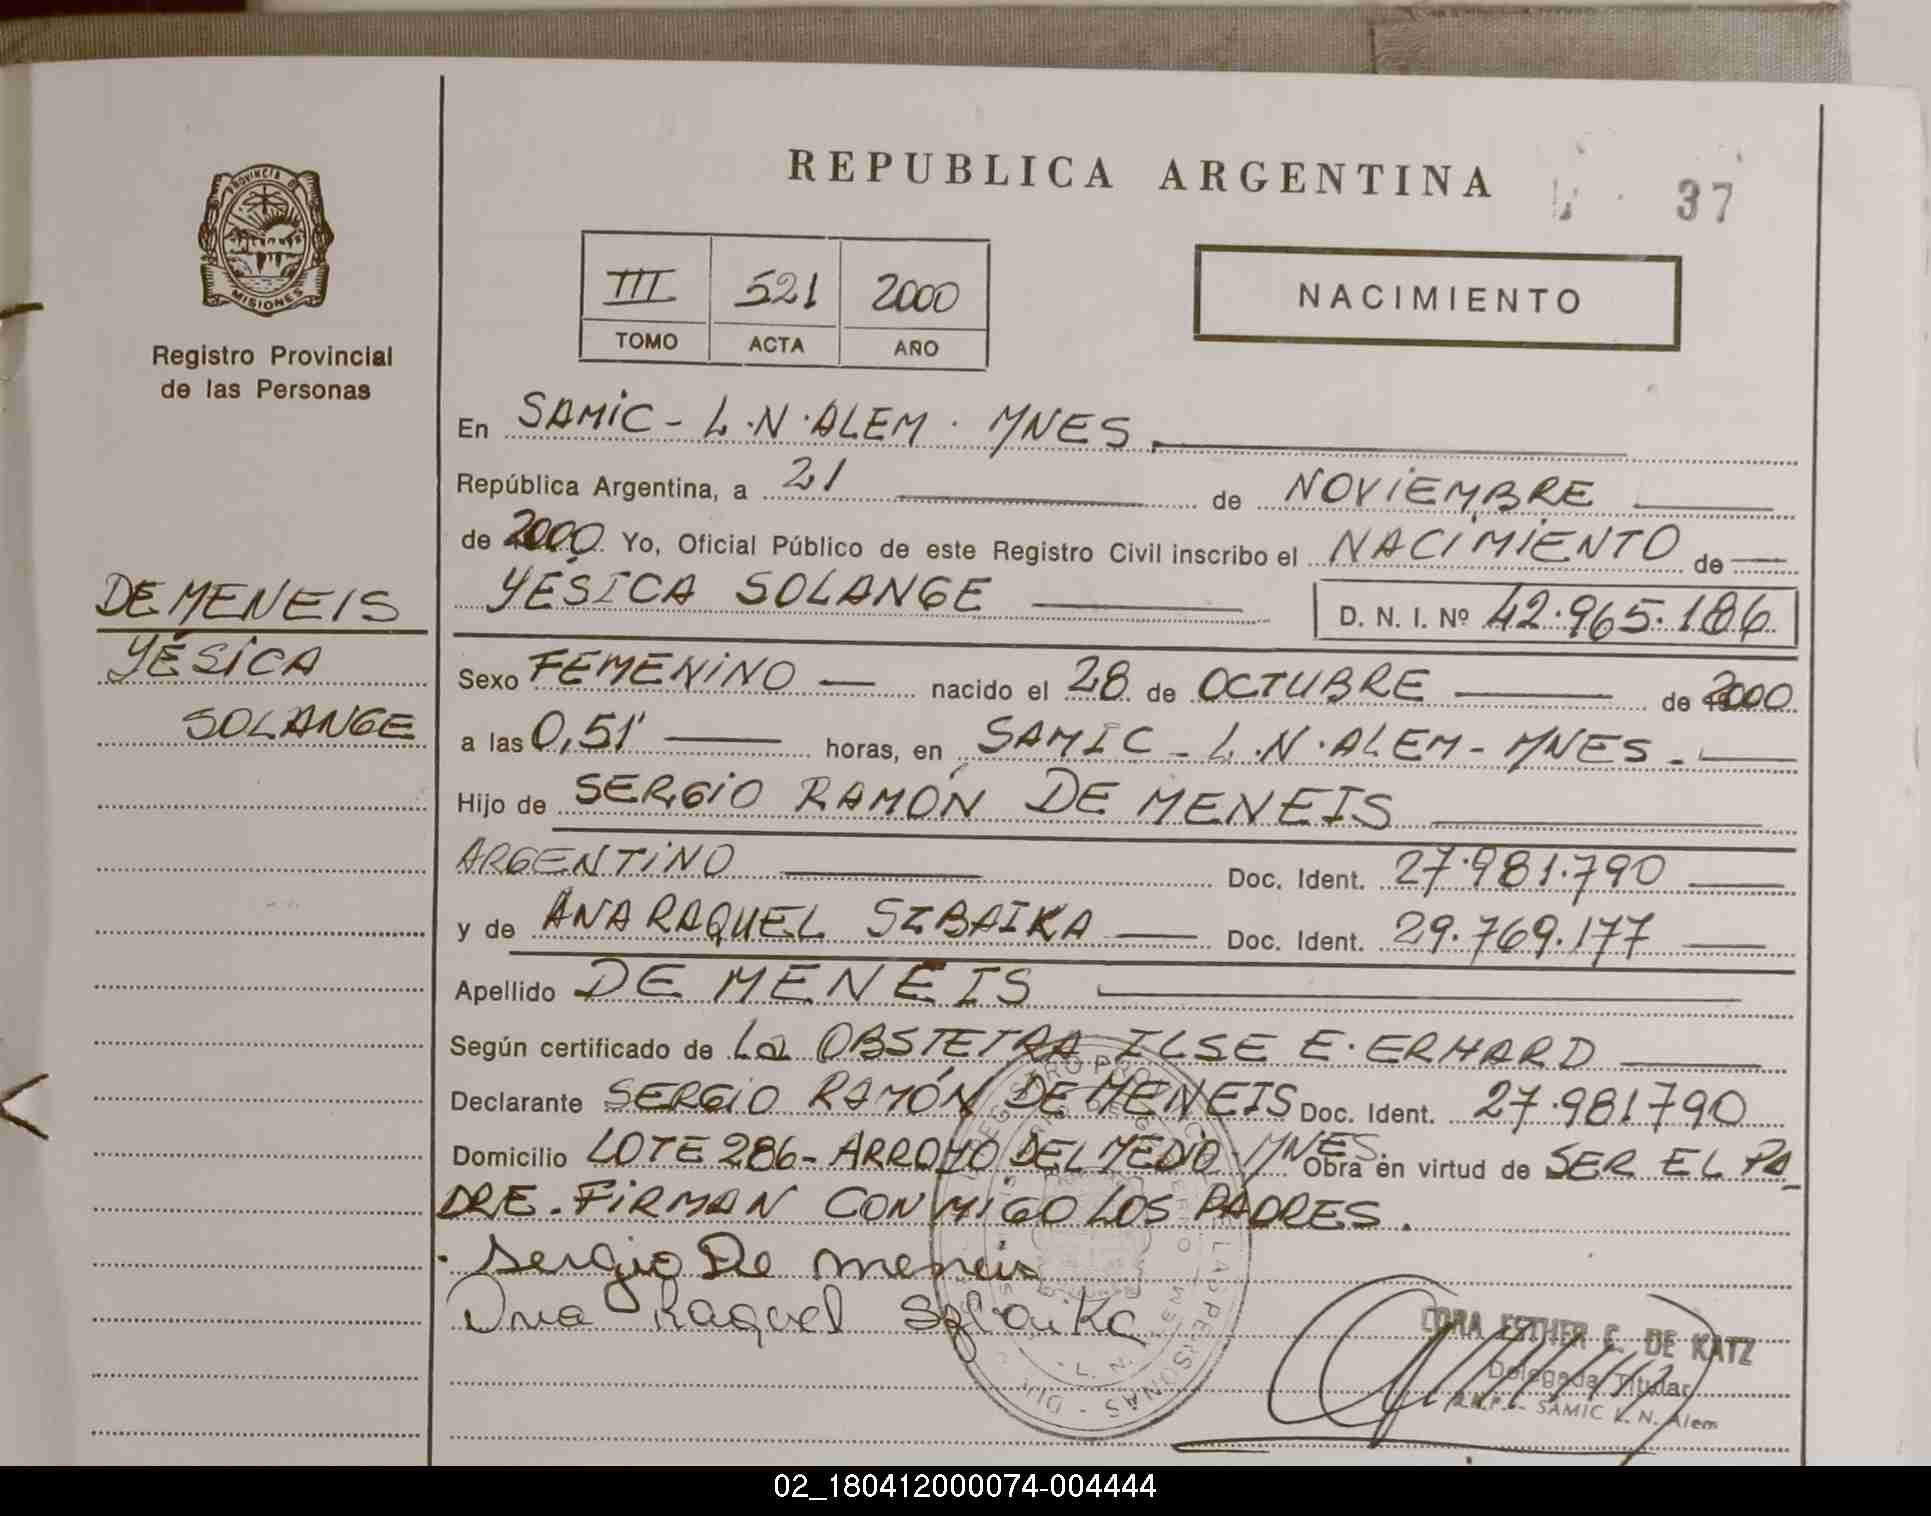 REPUBLICA ARGENTINA
37
PROVINCIA DE
MISIONES
Registro Provincial
de las Personas
III 521 2000
TOMO ACTA AÑO
NACIMIENTO
En SAMIC - L.N.ALEM. MNES.
República Argentina, a 21 de NOVIEMBRE
de 2000. Yo, Oficial Público de este Registro Civil inscribo el NACIMIENTO de
YÉSICA SOLANGE D. N. I. Nº 42.965.186
DE MENEIS
YÉSICA
SOLANGE
Sexo FEMENINO nacido el 28 de OCTUBRE de 2000
a las 0,51' horas, en SAMIC - L.N.ALEM - MNES.
Hijo de SERGIO RAMÓN DE MENEIS
ARGENTINO Doc. Ident. 27.981.790
y de ANA RAQUEL SZBAIKA Doc. Ident. 29.769.177
Apellido DE MENEIS
Según certificado de La OBSTETRA ILSE E. ERHARD
Declarante SERGIO RAMÓN DE MENEIS Doc. Ident. 27.981790
Domicilio LOTE 286 - ARROYO DEL MEDIO - MNES. Obra en virtud de SER EL PA
DRE. FIRMAN CONMIGO LOS PADRES.
Sergio De meneis
Ana Raquel
CORA ESTHER C. DE KATZ
Delegada Titular
SAMIC L. N. Alem
02_180412000074-004444